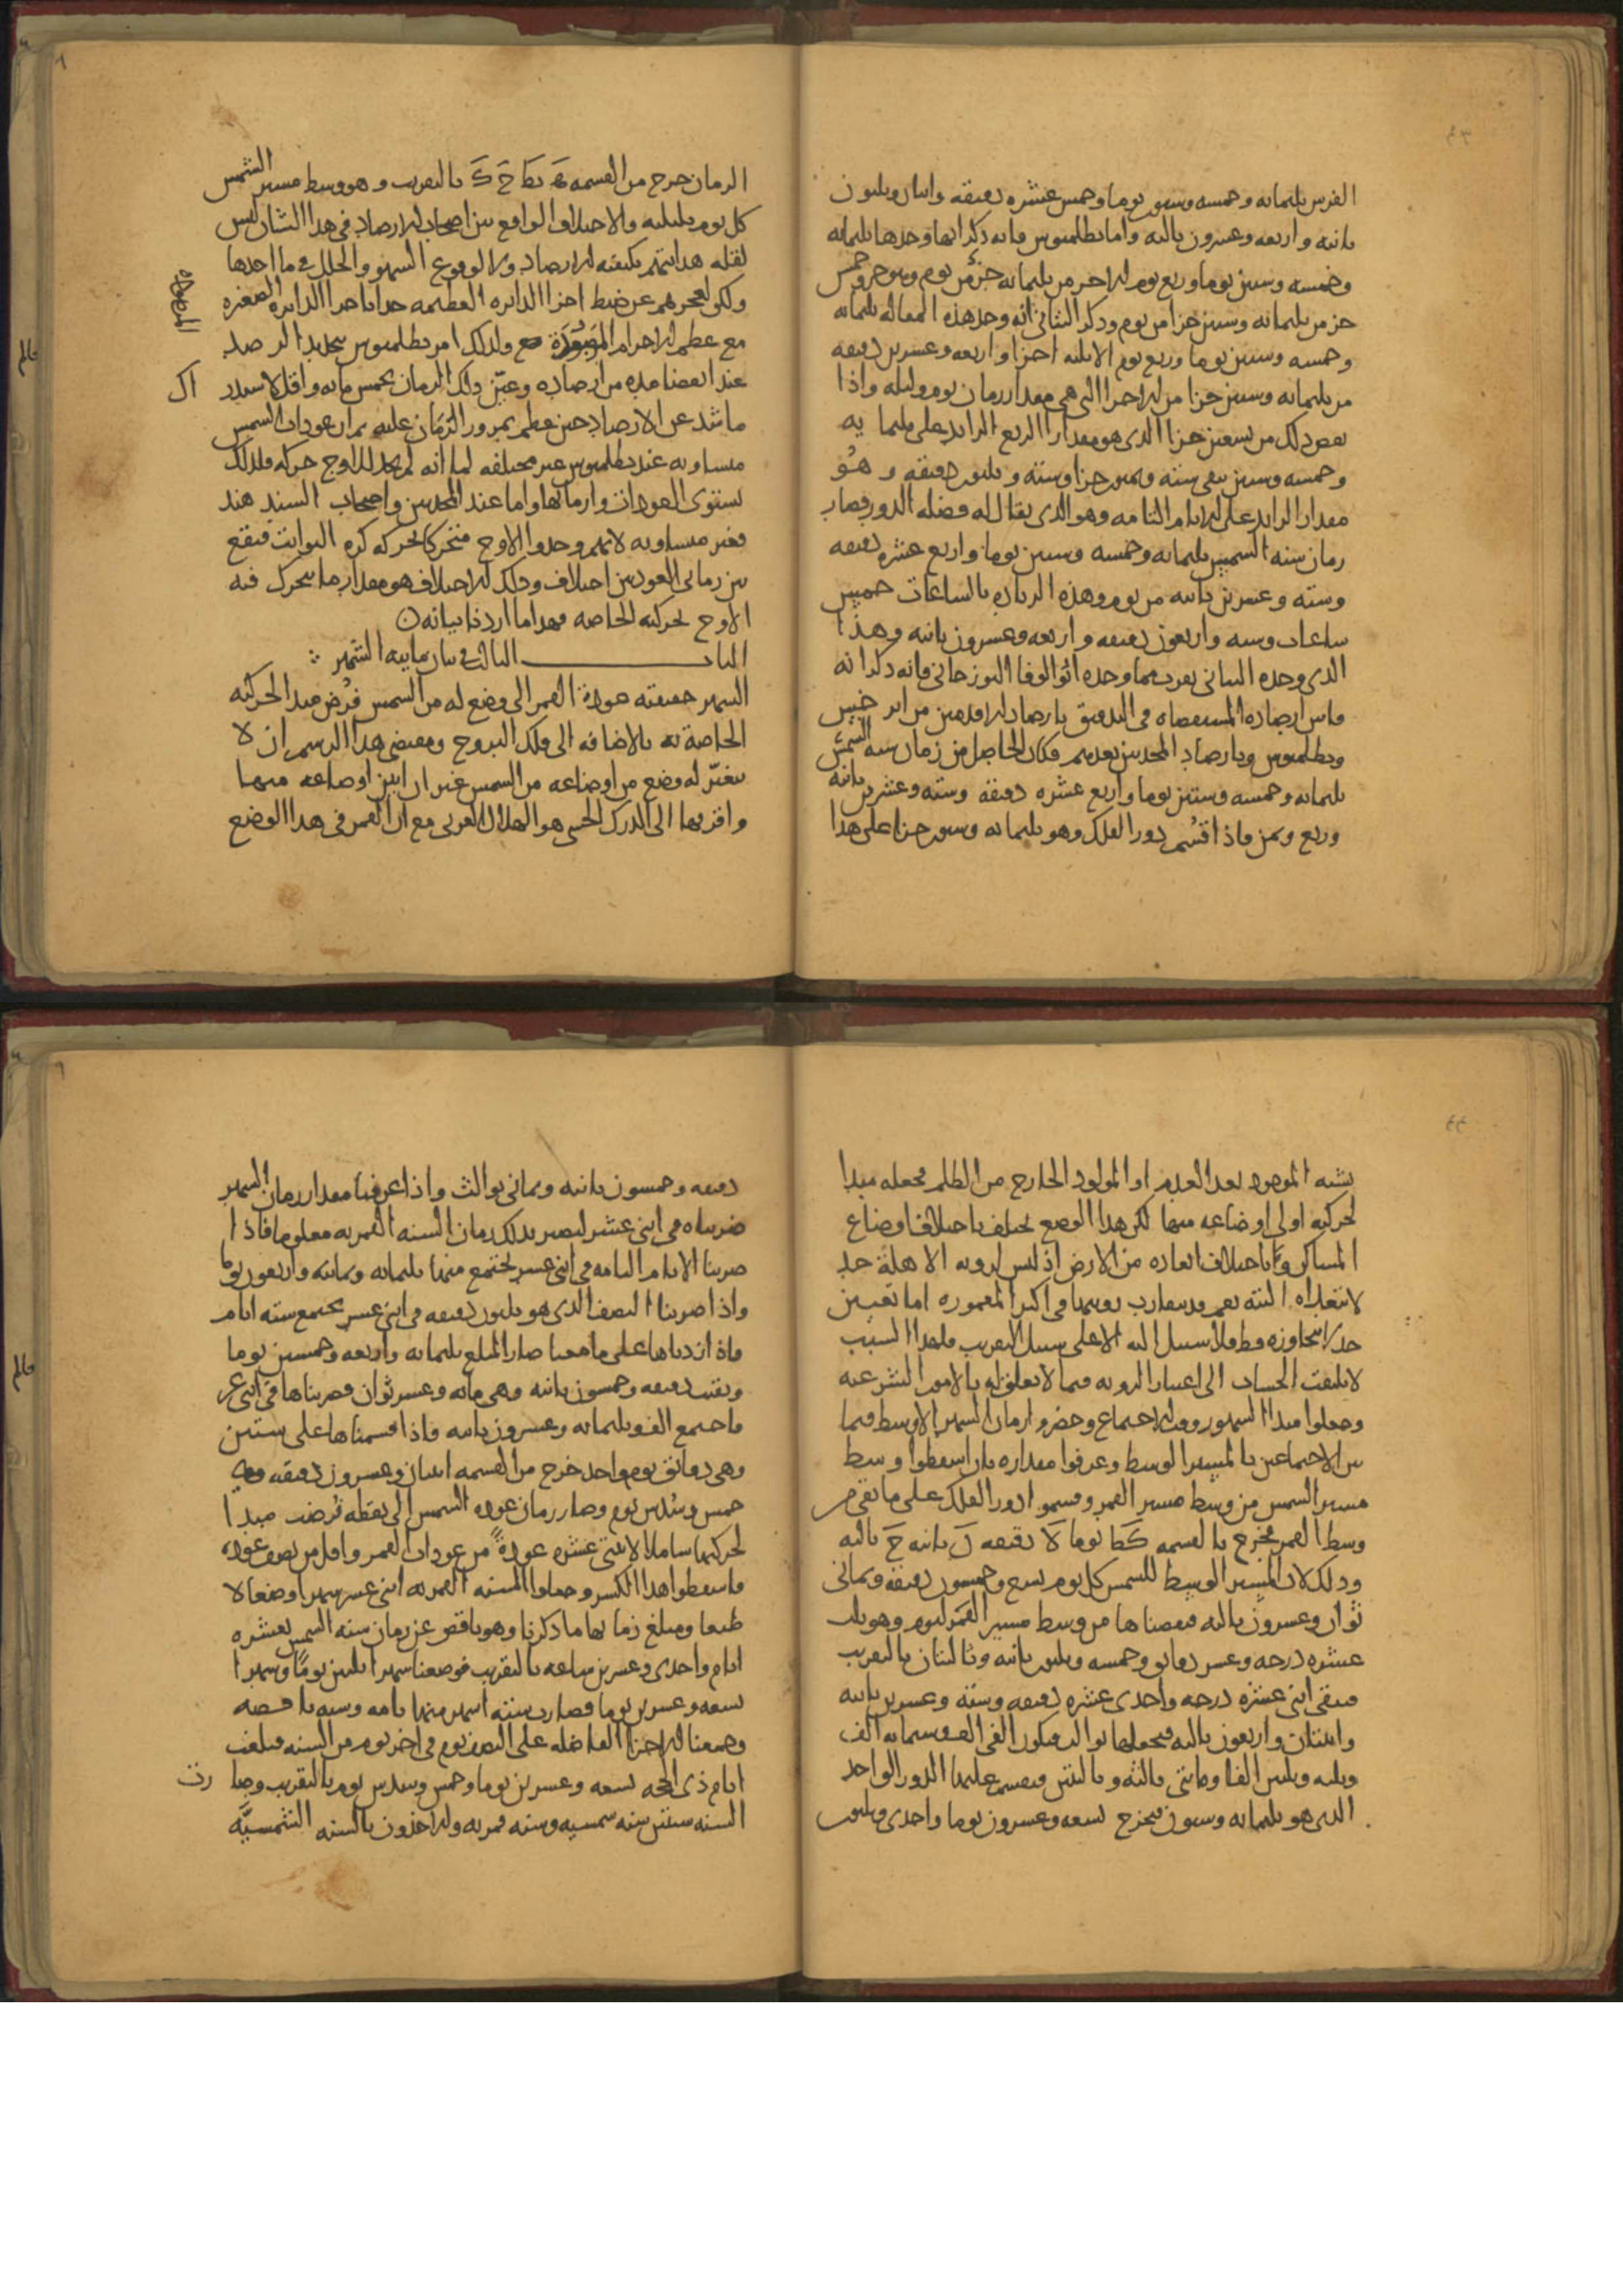 الفرس ثلثمائه وخمسه وستون يوما وخمس عشره دقيقه واثنان وثلثون
ثانيه واربعه وعشرون ثالثه واما بطلميوس فانه ذكر انها وجدها ثلثمائه
وخمسه وستين يوما وربع يوم الا جزء من ثلثمائه جزء من يوم
جزء من ثلثمائه وستين جزا من يوم وذكر الثاني انه وجد هذه المقاله ثلثمائه
وخمسه وستين يوما وربع يوم الا ثلثه اجزا واربعه وعشرين دقيقه
من ثلثمائه وستين جزا من الاجزا التي هي مقدار زمان يوم وليله واذا
نقص ذلك من تسعين جزا الذي هو مقدار الربع الزايد على ثلثمايه
وخمسه وستين بقي سته وثمنون جزا وسته وثلثون دقيقه وهو
مقدار الزايد على الايام التامه وهو الذي يقال له فضله الدور فصار
زمان سنه الشمس ثلثمائه وخمسه وستين يوما واربع عشره دقيقه
وسته وعشرين ثانيه من يوم وهذه الزياده بالساعات خمس
ساعات وسته واربعون دقيقه واربعه وعشرون ثانيه وهذا
الذي وجده البتاني يقرب مما وجده ابو الوفا البوزجاني فانه ذكر انه
قاس ارصاده المستقصاه في التدقيق بارصاد الاقدمين من ابرخس
وبطلميوس وبارصاد المحدثين بعدهم فكان الحاصل من زمان سنه الشمس
ثلثمائه وخمسه وستين يوما واربع عشره دقيقه وسته وعشرين ثانيه
وربع وثمن فاذا قسم دور الفلك وهو ثلثمائه وستون جزا على هذا
الزمان خرج من القسمه بالتقريب وهو وسط مسير الشمس
كل يوم بليلته والاختلاف الواقع بين اصحاب الارصاد في هذا الشان ليس
لقله هدايتهم بكيفيه الارصاد ولا لوقوع السهو والخلل في ما اخذها
ولكن لعجزهم عن ضبط اجزا الدايره العظيمه باجزا الدايره الصغيره
المرصوده
مع عظم الاجرام ولذلك امر بطلميوس بتجديد الرصد
عند انقضا مده من ارصاده وعين ذلك الزمان بخمس مايه واقل لاستدراك
ما شذ عن الارصاد حين عظم بمرور الزمان عليه ثم ان عودات الشمس
متساويه عند بطلميوس غير مختلفه لما انه لم يجد للاوج حركه فلذلك
تستوي العودات وازمانها واما عند المحدثين واصحاب السند هند
فغير متساويه لانهم وجدوا الاوج متحركا بحركه كره الثوابت فيقع
بين زماني العودتين اختلاف وذلك الاختلاف هو مقدار ما يتحرك فيه
الاوج بحركته الخاصه فهذا ما اردنا بيانه
الباب الثالث في بيان مايته الشهر
الشهر حقيقته عوده القمر الى وضع له من الشمس فرض مبدا لحركته
الخاصه به بالاضافه الى فلك البروج ومقتضى هذا الرسم ان لا
يتغير له وضع من اوضاعه من الشمس غير ان ابين اوضاعه منها
واقربها الى الدرك الحسي هو الهلال الغربي مع ان القمر في هذا الوضع
يشبه الموجود بعد العدم او المولود الخارج من الظلم فجعله مبدا
لحركته اولى اوضاعه منها لكن هذا الوضع يختلف باختلاف اوضاع
المساكن وباختلاف ابعاده من الارض اذ ليس لرويه الاهله حد
لا تتعداه البته نعم وقد تتقارب رويتها في اكثر المعموره اما تعيين
حد لا يتجاوزه قط فلا سبيل اليه الا على سبيل التقريب فلهذا السبب
لا يلتفت الحساب الى اعتبار الرويه فيما لا تعلق له بالامور الشرعيه
وجعلوا مبدا الشهور وقت الاجتماع وحضروا زمان الشهر الاوسط فيما
بين الاجتماعين بالمسير الوسط وعرفوا مقداره بان اسقطوا وسط
مسير الشمس من وسط مسير القمر وقسموا دور الفلك على ما بقي من
وسط القمر فخرج بالقسمه كط يوما لا دقيقه ن ثانيه ح ثالثه
وذلك لان المسير الوسط للشمس كل يوم تسع وخمسون دقيقه وثماني
ثوان وعشرون ثالثه فنقصناها من وسط مسير القمر ليوم وهو ثلث
عشره درجه وعشر دقايق وخمسه وثلثون ثانيه وثالثتان بالتقريب
فبقي اثني عشره درجه واحدى عشره دقيقه وسته وعشرين ثانيه
واثنتان واربعون ثالثه فجعلناها ثوالث فيكون الفي الف وستمائه الف
وثلثه وثلثين الفا ومايتي ثالثه وثالثتين فيقسم عليها الدور الواحد
الذي هو ثلثمائه وستون فيخرج تسعه وعشرون يوما واحدى وثلثون
دقيقه وخمسون ثانيه وثماني ثوالث واذا عرفنا مقدار زمان الشهر
ضربناه في اثني عشر ليصير بذلك زمان السنه القمريه معلوما فاذا
ضربنا الايام التامه في اثني عشر يجتمع منها ثلثمائه وثمانيه واربعون يوما
واذا ضربنا النصف الذي هو ثلثون دقيقه في اثني عشر يجتمع سته ايام
فاذا زدناها على ما معنا صار المبلغ ثلثمائه واربعه وخمسين يوما
وبقيت دقيقه وخمسون ثانيه وهي مائه وعشر ثوان فضربناها في اثني عشر
فاجتمع الف وثلثمائه وعشرون ثانيه فاذا قسمناها على ستين
وهي دقائق يوم واحد خرج من القسمه اثنان وعشرون دقيقه وهي
خمس وسدس يوم وصار زمان عوده الشمس الى نقطه فرضت مبدا
لحركتها شاملا لاثنتي عشره عودة من عودات القمر واقل من نصف عوده
فاسقطوا هذا الكسر وجعلوا السنه القمريه اثني عشر شهرا وضعا لا
طبعا ومبلغ زمانها ما ذكرنا وهو ناقص عن زمان سنه الشمس بعشره
ايام واحدى وعشرين ساعه بالتقريب فوضعنا شهرا ثلثين يوما وشهرا
تسعه وعشرين يوما فصارت سته اشهر منها تامه وسته ناقصه
وجمعنا الاجزا الفاضله على النصف يوم في اخر يوم من السنه فبلغت
ايام ذي الحجه تسعه وعشرين يوما وخمس وسدس يوم بالتقريب وصارت
السنه سنتين سنه شمسيه وسنه قمريه والاخذون بالسنه الشمسيه